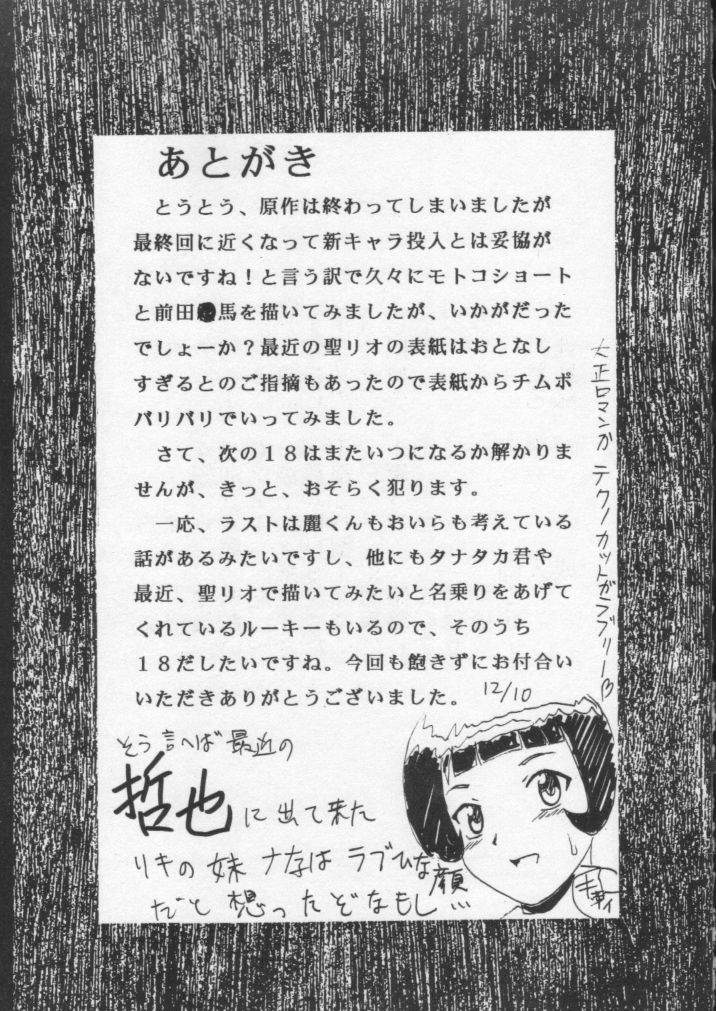 あとがき
とうとう、原作は終わってしまいましたが
最終回に近くなって新キャラ投入とは妥協が
ないですね！と言う訳で久々にモトコショート
と前田馬を描いてみましたが、いかがだった
でしょーか？最近の聖リオの表紙はおとなし
すぎるとのご指摘もあったので表紙からチムポ
バリバリでいってみました。
さて、次の１８はまたいつになるか解かりま
せんが、きっと、おそらく犯ります。
一応、ラストは麗くんもおいらも考えている
話があるみたいですし、他にもタナタカ君や
最近、聖リオで描いてみたいと名乗りをあげて
くれているルーキーもいるので、そのうち
１８だしたいですね。今回も飽きずにお付合い
いただきありがとうございました。
12/10
大正ロマンか テクノカットがラブリー♡
そう言へば最近の
哲也に出て来た
リキの妹ナナは ラブひな顔
だと想ったぞなもし